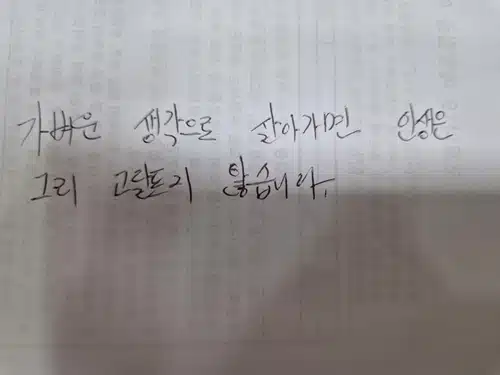 가벼운 생각으로 살아가면 인생은
그리 고달프지 않습니다.